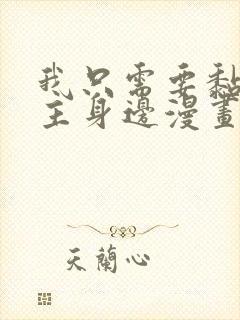 我只需要黏
主身邊漫畫
天蘭心